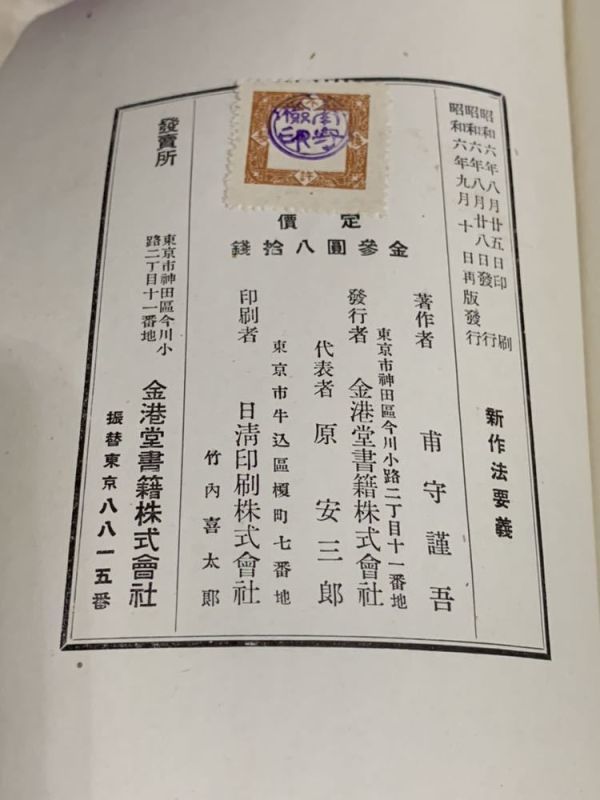 昭和六年八月廿五日印刷
昭和六年八月廿八日發行
昭和六年九月十日再版發行
新作法要義
不
許
定價
金參圓八拾錢
著作者 甫守謹吾
東京市神田區今川小路二丁目十一番地
發行者 金港堂書籍株式會社
代表者 原安三郎
東京市牛込區榎町七番地
印刷者 日淸印刷株式會社
竹內喜太郎
發賣所
東京市神田區今川小路二丁目十一番地
金港堂書籍株式會社
振替東京八八一五番